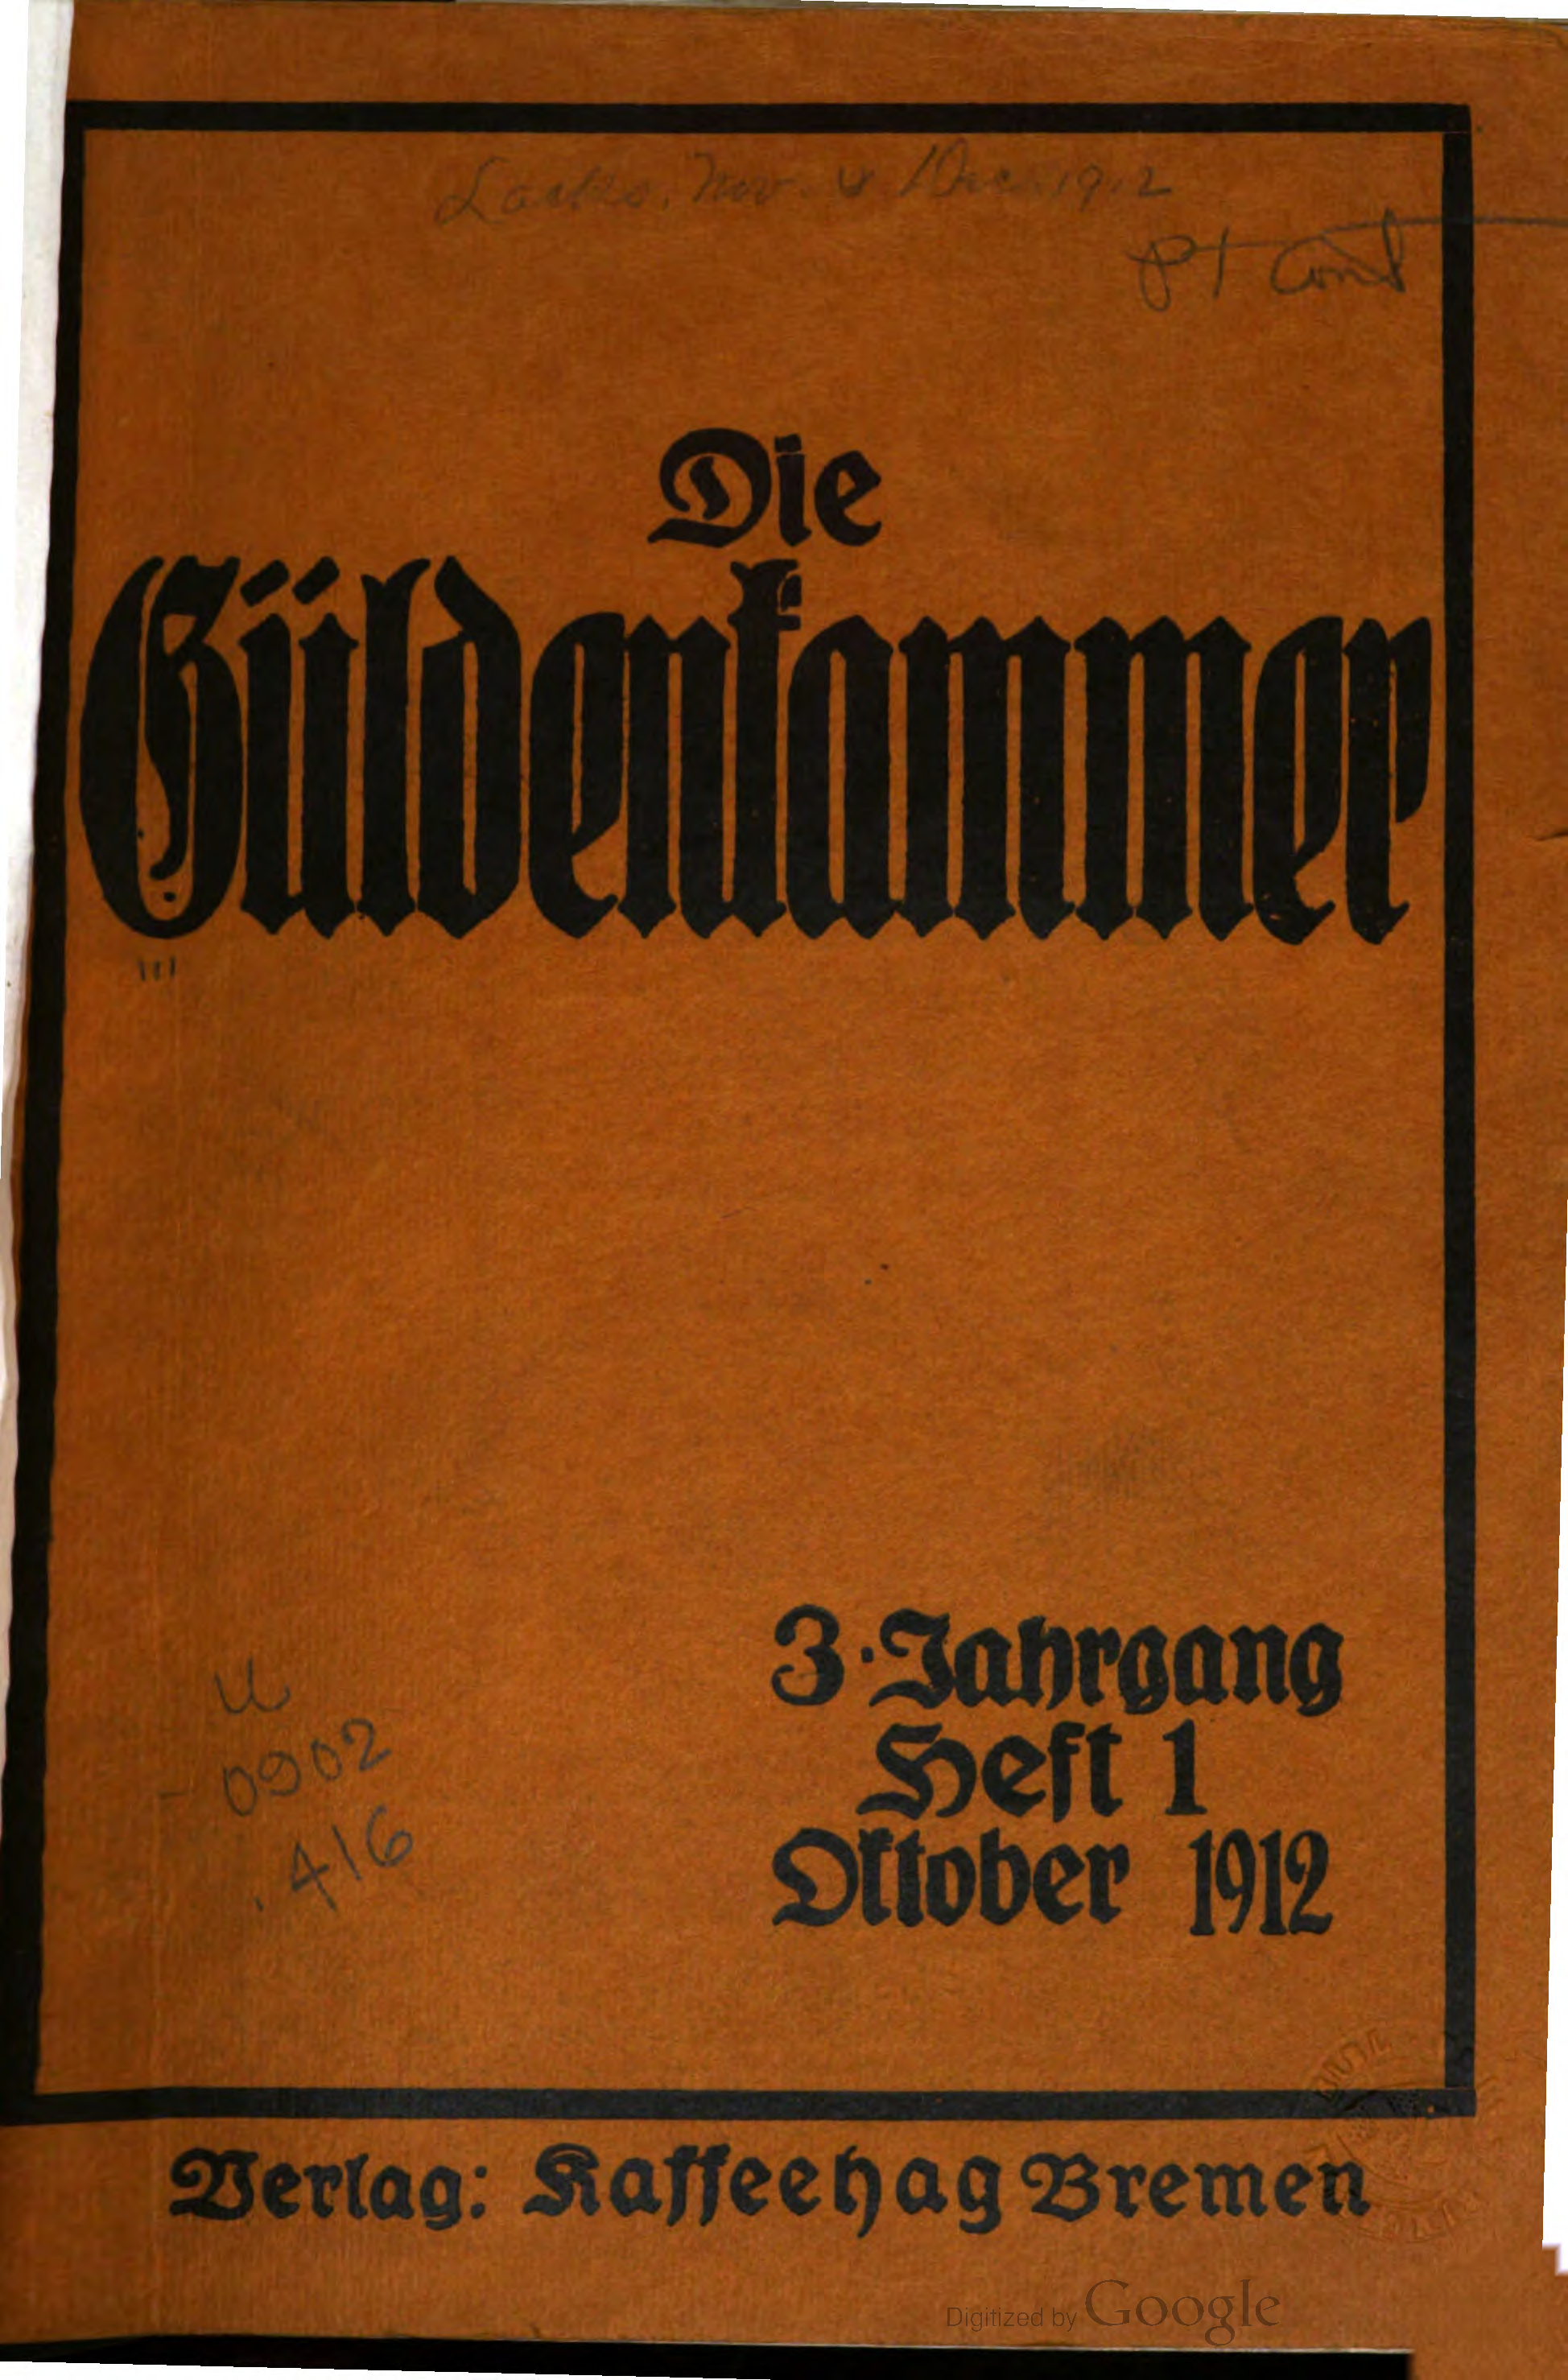 Lacks. Nov. & Dec. 1912
pt cont
Die
Güldenkammer
3. Jahrgang
Heft 1
Oktober 1912
u
-0902
.416
Verlag: Kaffeehag Bremen
Digitized by Google